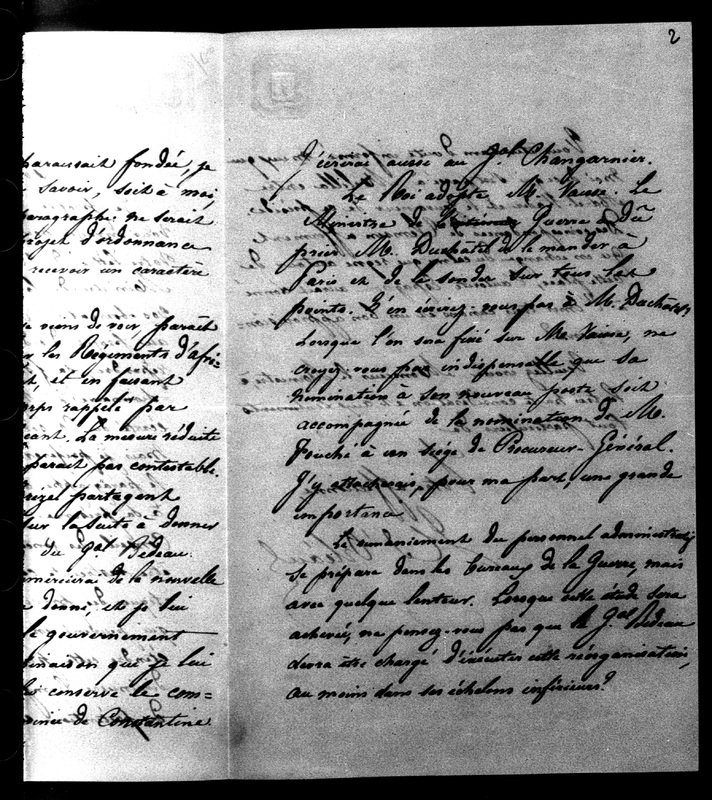 2
paraissait fondée, je
savoir, soit à moi,
paragraphe ne serait
projet d'ordonnance
recevoir un caractère
viens de voir paraît
les Régiments d'afri-
et en faisant
corps rappelé par
La mesure réduite
paraît pas contestable.
partagent
sur la suite à donner
du Gal Bedeau.
remercierai de la nouvelle
donné, et je lui
le gouvernement
que je lui
conserve le com-
de Constantine
J'écrirai aussi au Gal Changarnier.
Le Roi adopte M. Vaisse. Le
Ministre de la Guerre a dû
prier M. Duchâtel de le mander à
Paris et de le sonder sur tous les
points. N'en écrivez-vous pas à M. Duchâtel?
Lorsque l'on sera fixé sur M. Vaisse, ne
croyez-vous pas indispensable que sa
nomination à son nouveau poste soit
accompagnée de la nomination de M.
Fouché à un siége de Procureur-Général.
J'y attacherais, pour ma part, une grande
importance
Le remaniement du personnel administratif
se prépare dans les bureaux de la Guerre, mais
avec quelque lenteur. Lorsque cette étude sera
achevée, ne pensez-vous pas que le Gal Bedeau
devra être chargé d'exécuter cette réorganisation,
au moins dans ses échelons inférieurs?